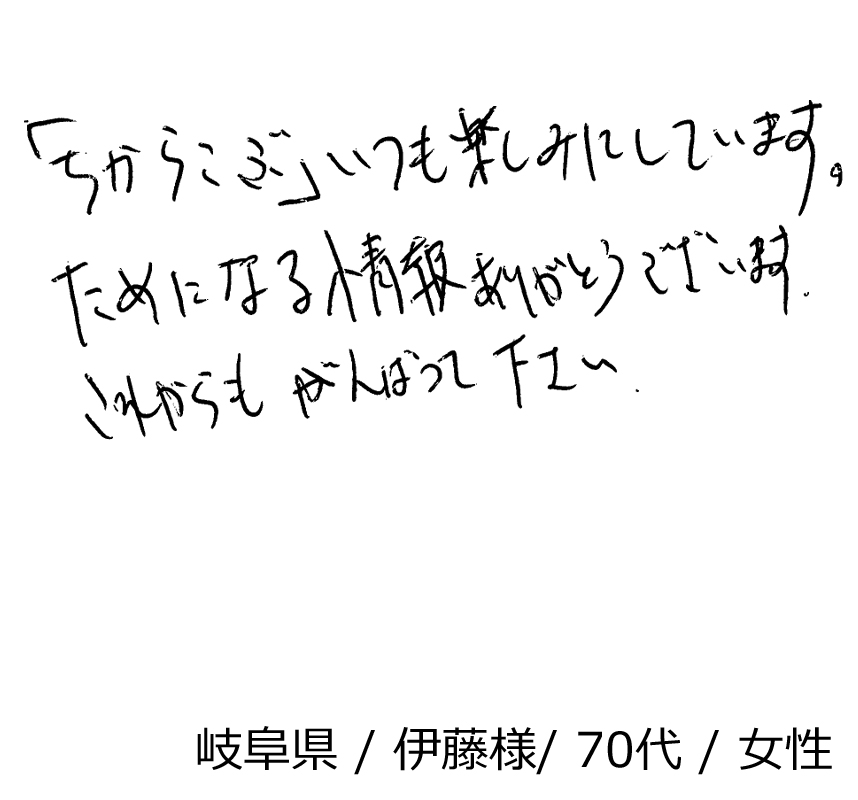 「ちからこぶ」いつも楽しみにしています。
ためになる情報ありがとうございます.
これからもがんばって下さい.
岐阜県 / 伊藤様/ 70代 / 女性